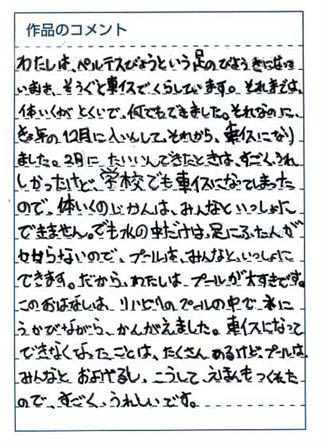 作品のコメント
わたしは、ペルテスびょうという足のびょうきになって
います。そうぐと車イスでくらしています。それまでは、
体いくがとくいで、何でもできました。それなのに、
きょ年の12月に入いんして、それから、車イスになり
ました。2月にたいいんできたときは、すごく、うれ
しかったけど、学校でも車イスになってしまった
ので、体いくのじかんは、みんなといっしょに
できません。でも水の中だけは、足にふたんが
かからないので、プールを、みんなと、いっしょに
できます。だから、わたしは、プールが大すきです。
このおはなしは、リハビリのプールの中で、水に
うかびながら、かんがえました。車イスになって
できなくなったことは、たくさんあるけど、プールは、
みんなと およげるし、こうして、えほんもつくれた
ので、すごく、うれしいです。